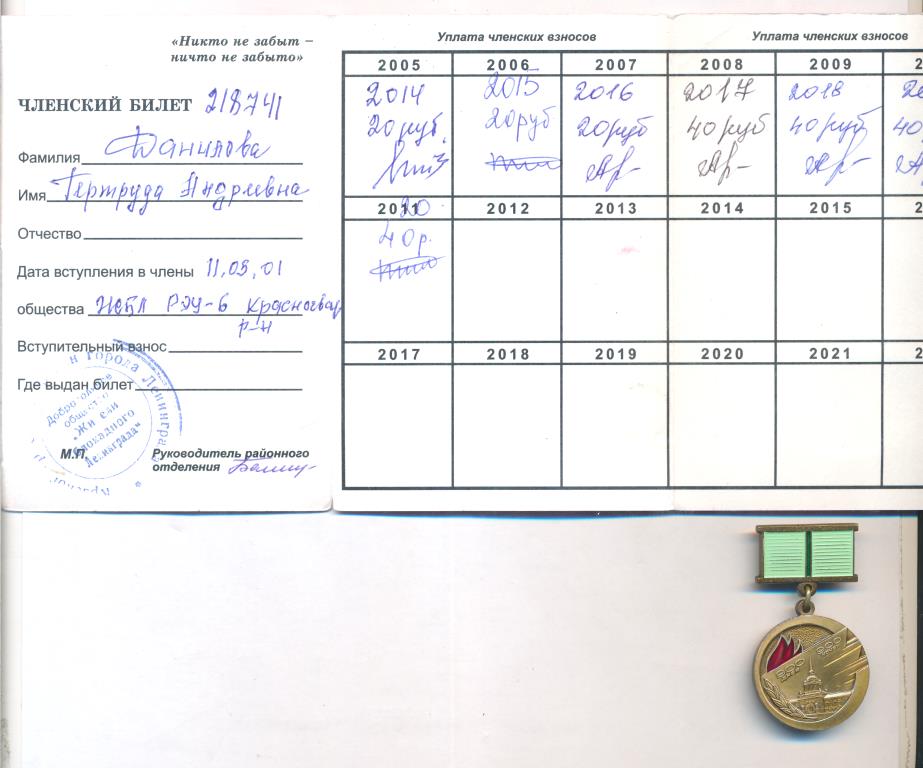 «Никто не забыт –
ничто не забыто»
ЧЛЕНСКИЙ БИЛЕТ 218741
Фамилия Данилова
Имя Гертруда Андреевна
Отчество
Дата вступления в члены 11,03,01
общества ЖБЛ РЭУ-6 Красногвар
р-н
Вступительный взнос
Где выдан билет
М.П.
Руководитель районного
отделения
Города Ленинград
Добровольное
общество
"Жители
блокадного
Ленинграда"
Уплата членских взносов
Уплата членских взносов
2005 2006 2007 2008 2009 2
2014 2015 2016 2017 2018
20руб. 20руб 20руб 40руб 40руб 40
2011 2012 2013 2014 2015 2
20
40р.
2017 2018 2019 2020 2021 2
900 900